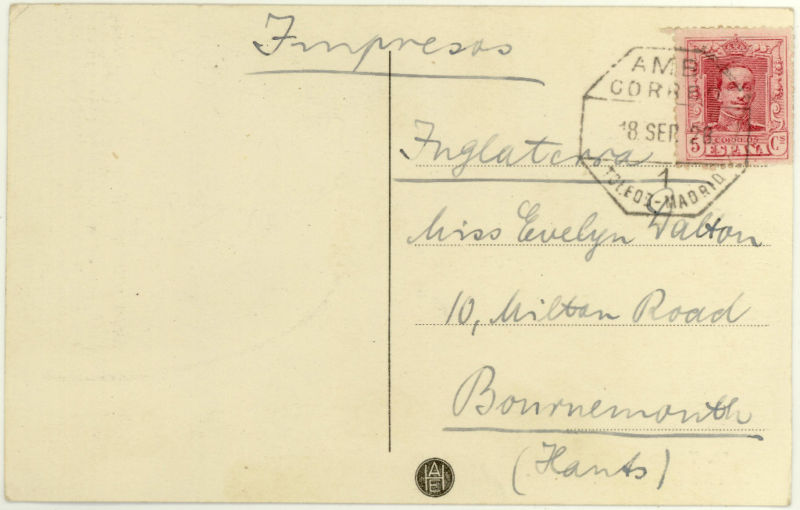 Impresos
AMB
CORREO
18 SEP. 28
1
TOLEDO-MADRID
CORREOS
5 ESPAÑA Cs
Inglaterra
Miss Evelyn Dalton
10, Milton Road
Bournemouth
(Hants)